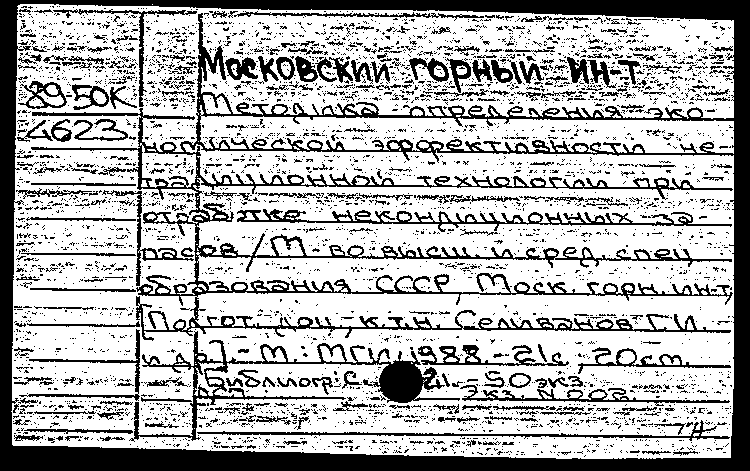 Московский горный ин-т
89-50К
4623
Методика определения эко-
номической эффективности не-
традиционной технологии при
отработке некондиционных за-
пасов / М-во высш. и сред. спец.
образования СССР, Моск. горн. ин-т,
[Подгот. доц., к.т.н. Селиванов Г.И.
и др.]. - М.: МГИ, 1988. - 21с.; 20см.
Библиогр.: с. 21. - 50 экз.
Экз. N 002.